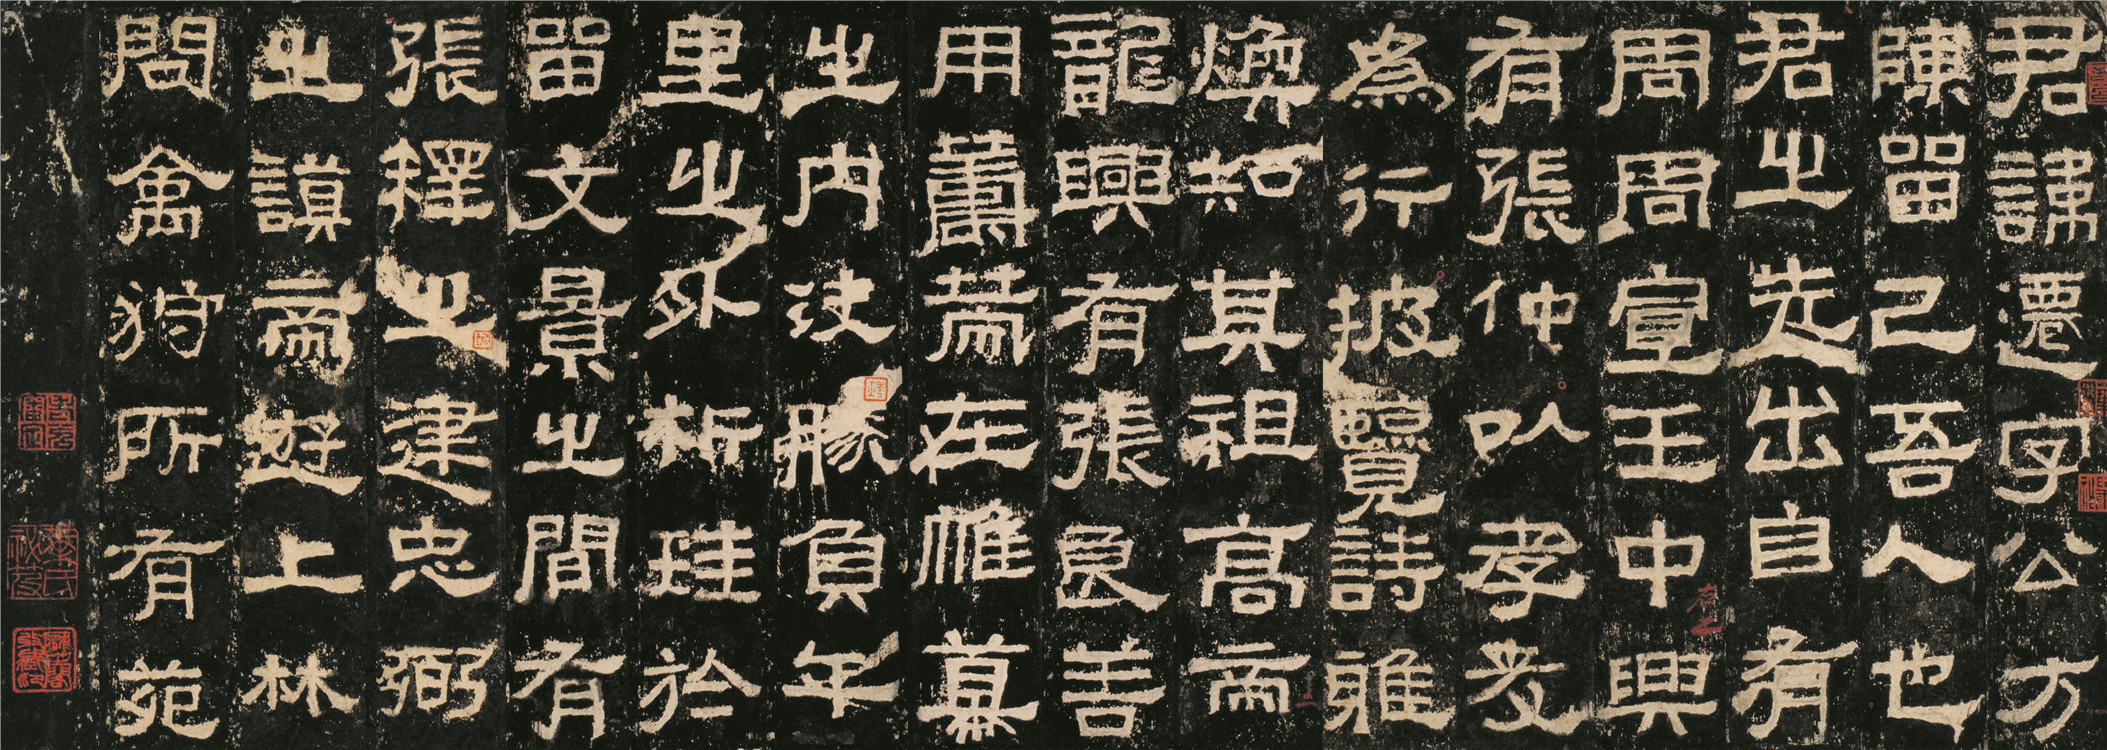 君諱遷字公方
陳留己吾人也
君之先出自有
周周宣王中興
有張仲以孝友
為行披覽詩雅
煥知其祖高帝
龍興有張良善
用籌策在帷幕
之內決勝負千
里之外析珪於
留文景之間有
張釋之建忠弼
之謨帝遊上林
問禽狩所有苑